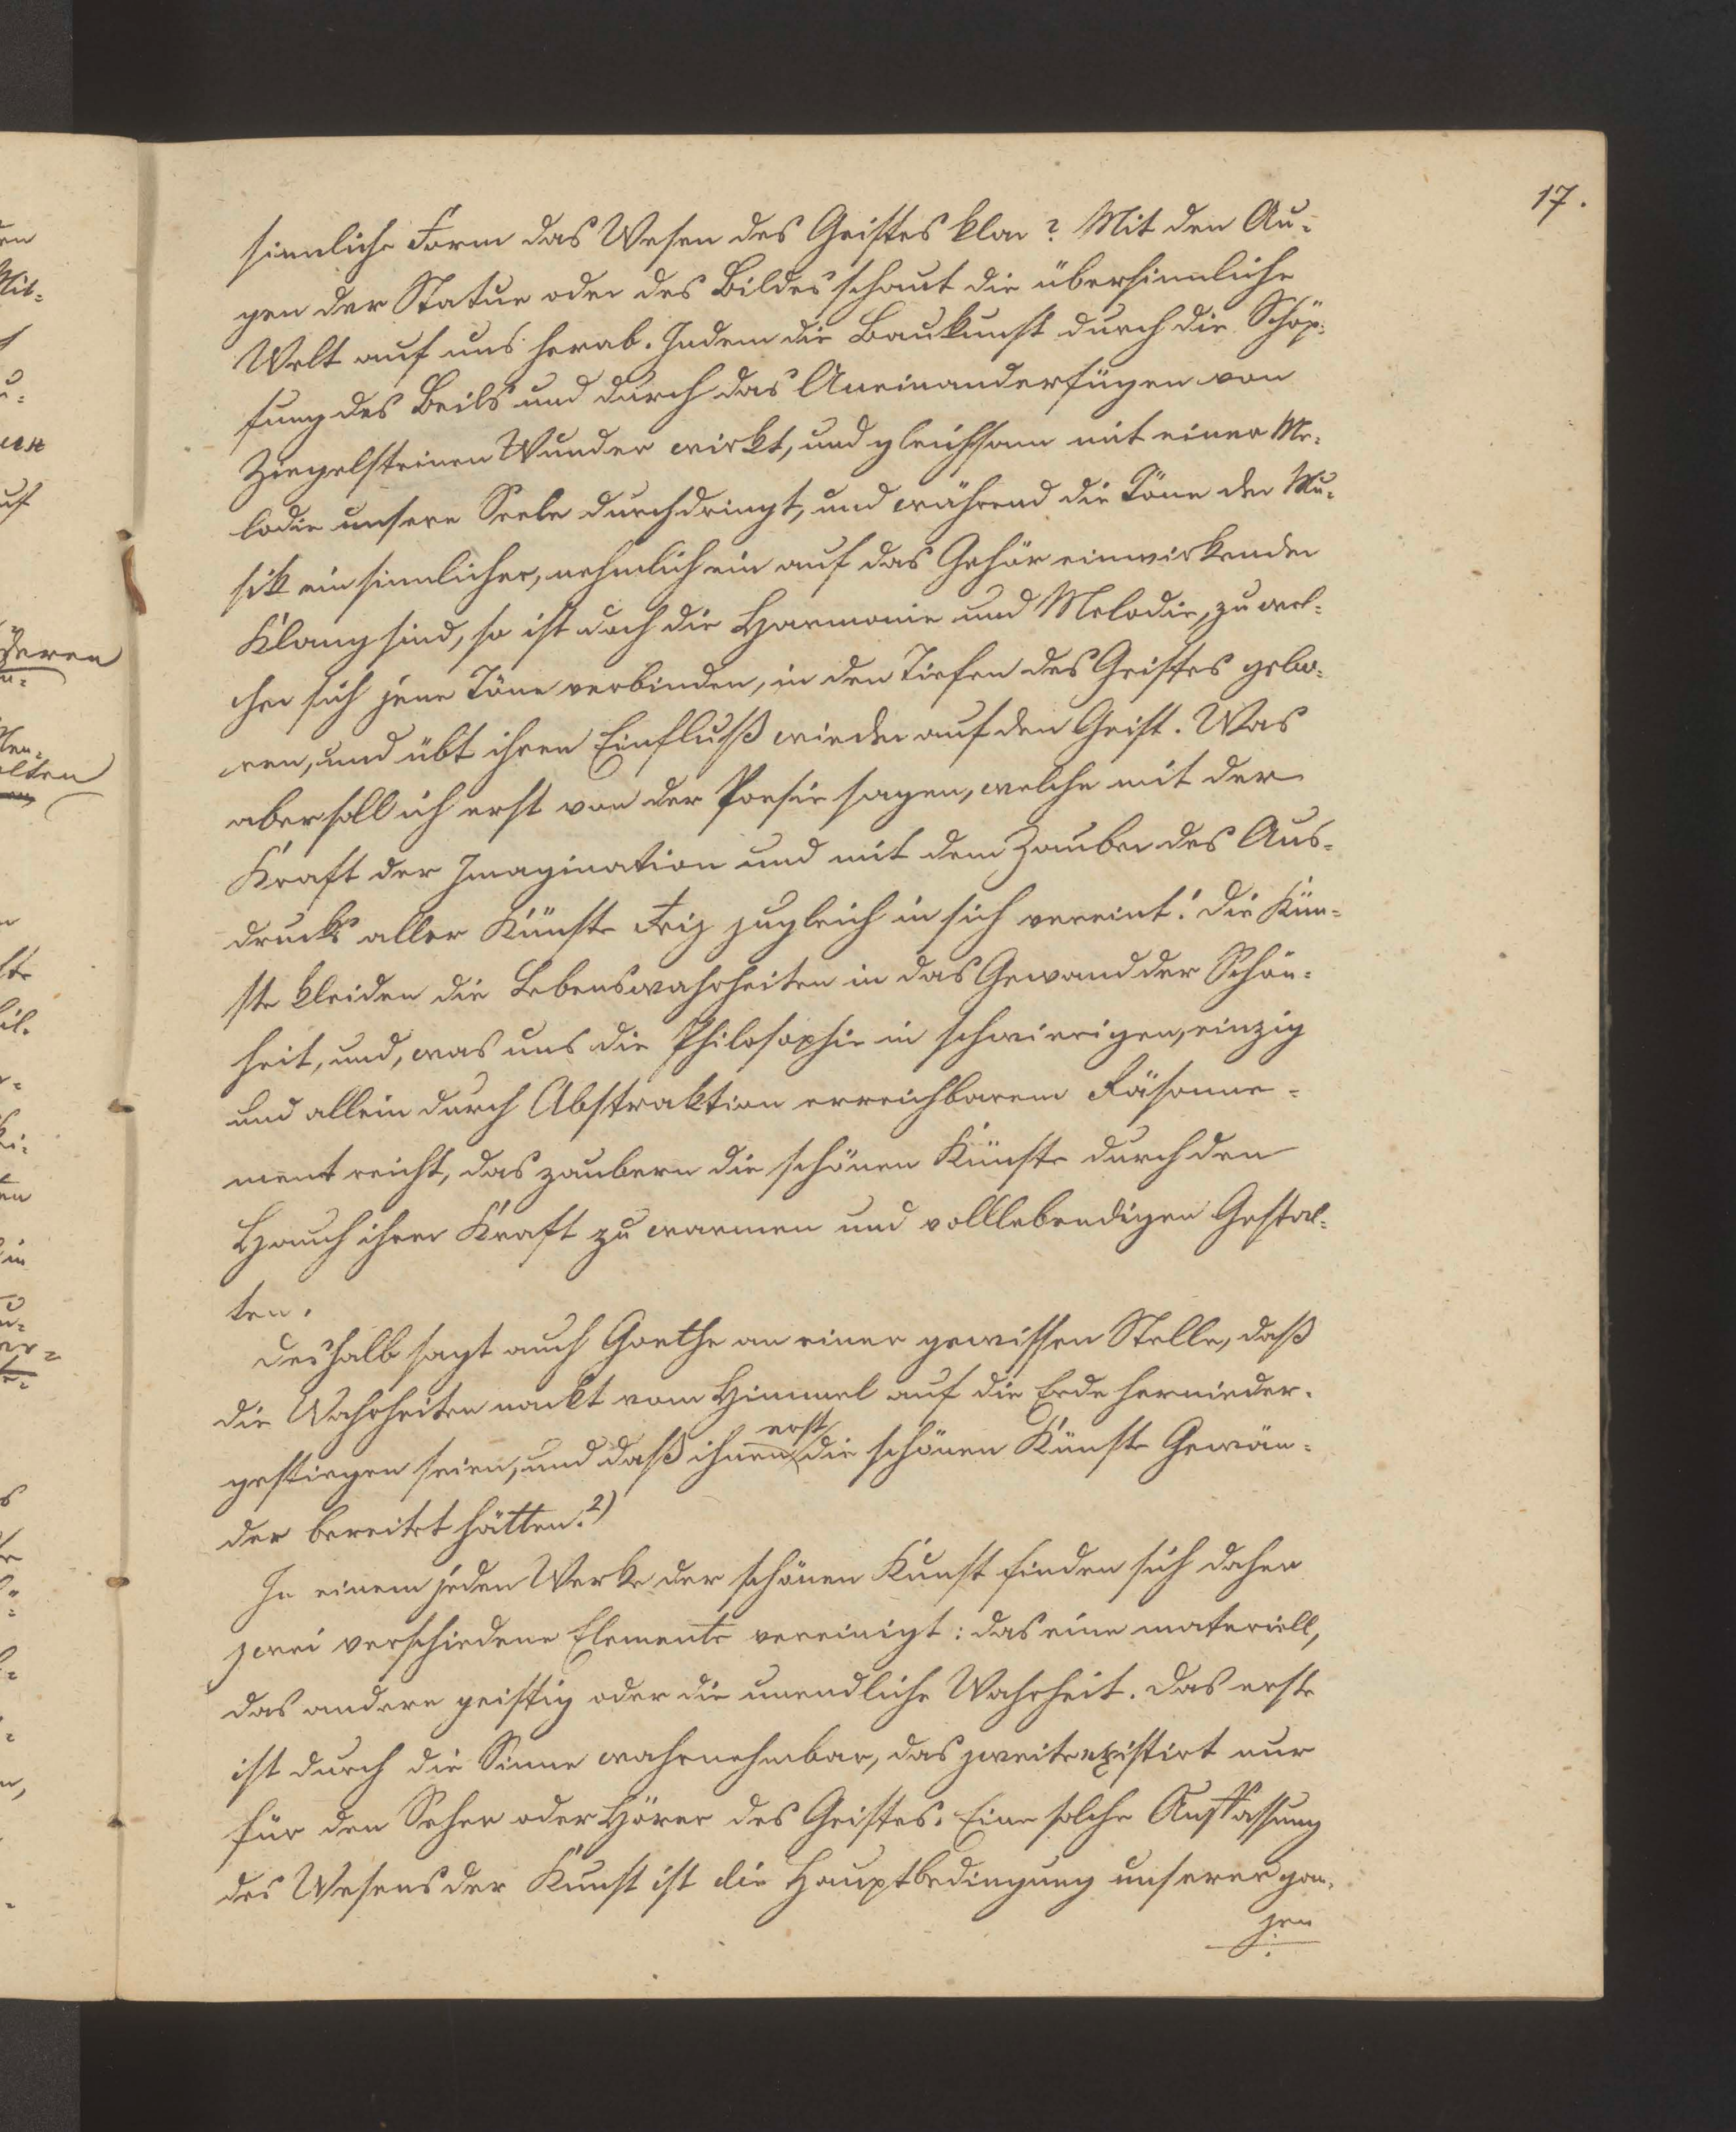 17.
sinnliche Form das Wesen des Geistes klar? Mit den Au-
gen der Statue oder des Bildes schaut die übersinnliche
Welt auf uns herab. Indem die Baukunst durch die Schöp-
fung des Beils und durch das Aneinanderfügen von
Ziegelsteinen Wunder wirkt, und gleichsam mit einer Me-
lodie unsere Seele durchdringt, und während die Töne der Mu-
sik ein sinnlicher, nehmlich ein auf das Gehör einwirkender
Klang sind, so ist doch die Harmonie und Melodie, zu wel-
cher sich jene Töne verbinden, in den Tiefen des Geistes gebo-
ren, und übt ihren Einfluß wieder auf den Geist. Was
aber soll ich erst von der Poesie sagen, welche mit der
Kraft der Imagination und mit dem Zauber des Aus-
drucks aller Künste Reiz zugleich in sich vereint! Die Kün-
ste kleiden die Lebenswahrheiten in das Gewand der Schön-
heit, und, was uns die Philosophie in schwierigen, einzig
und allein durch Abstraktion erreichbarem Räsonne-
ment reicht, das zaubern die schönen Künste durch den
Hauch ihrer Kraft zu warmen und volllebendigen Gestal-
ten.
Deshalb sagt auch Goethe an einer gewissen Stelle, daß
die Wahrheiten nackt vom Himmel auf die Erde hernieder-
gestiegen seien, und daß ihnen erst die schönen Künste Gewän-
der bereitet hätten.2)
In einem jeden Werke der schönen Kunst finden sich daher
zwei verschiedene Elemente vereinigt: das eine materiell,
das andere geistig oder die unendliche Wahrheit. Das erste
ist durch die Sinne wahrnehmbar, das zweite existirt nur
für den Seher oder Hörer des Geistes. Eine solche Auffassung
des Wesens der Kunst ist die Hauptbedingung unserer gan-
zen